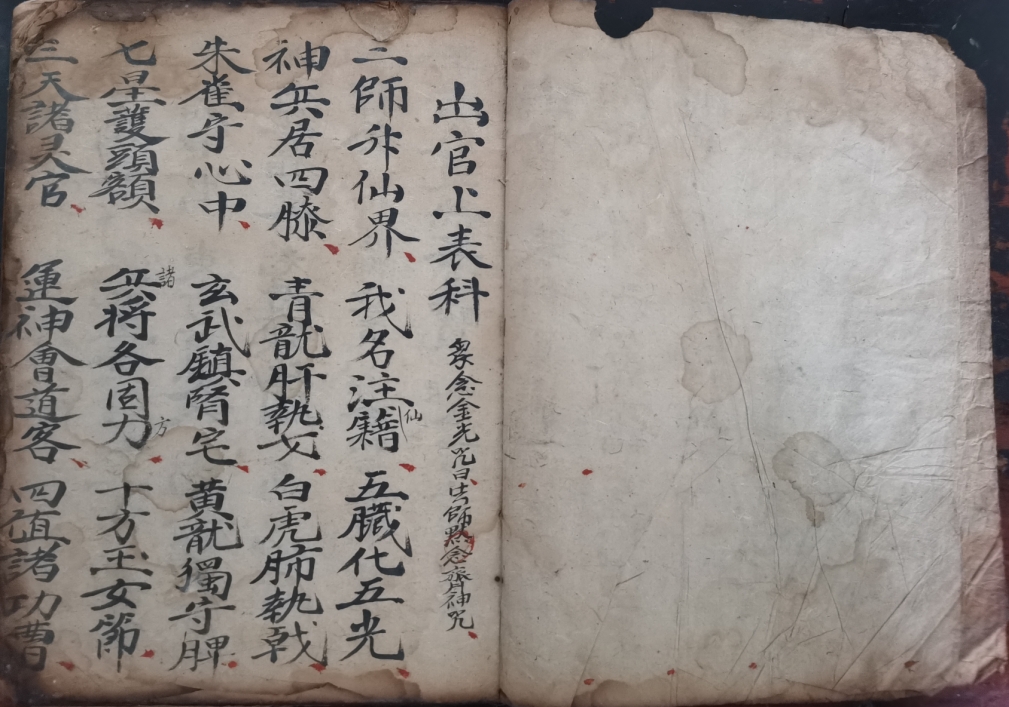 出官上表科 衆念金光咒曰法師默念齊神咒
二師升仙界 我名注仙籍 五臟化五光
神兵居四膝 青龍肝執戈 白虎肺執戟
朱雀守心中 玄武鎮腎宅 黃龍獨守脾
七星護頭額 諸兵將各固方力 十方玉女節
三天諸灵官 運神會道客 四直諸功曹